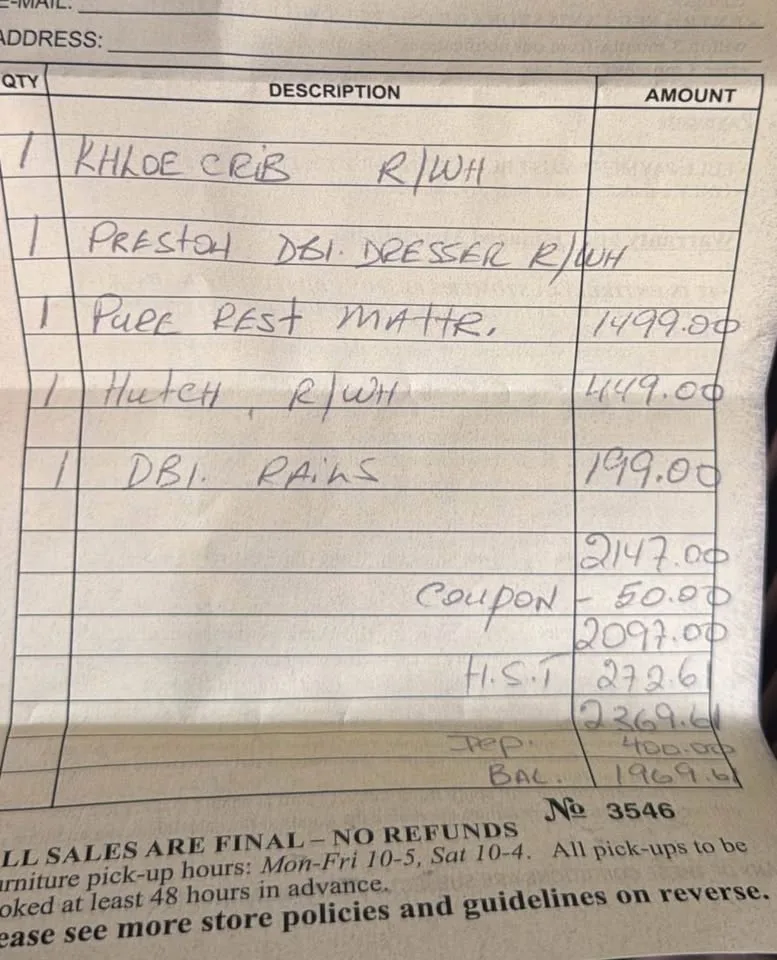 E-MAIL:
ADDRESS:
QTY DESCRIPTION AMOUNT
1 KHLOE CRIB R/WH
1 PRESTON DBL. DRESSER R/WH
1 PURE REST MATTR. 1499.00
1 HUTCH R/WH 449.00
1 DBL. RAILS 199.00
2147.00
COUPON - 50.00
2097.00
H.S.T 272.61
2369.61
Dep. 400.00
BAL. 1969.61
No 3546
LL SALES ARE FINAL – NO REFUNDS
urniture pick-up hours: Mon-Fri 10-5, Sat 10-4. All pick-ups to be
ooked at least 48 hours in advance.
ease see more store policies and guidelines on reverse.